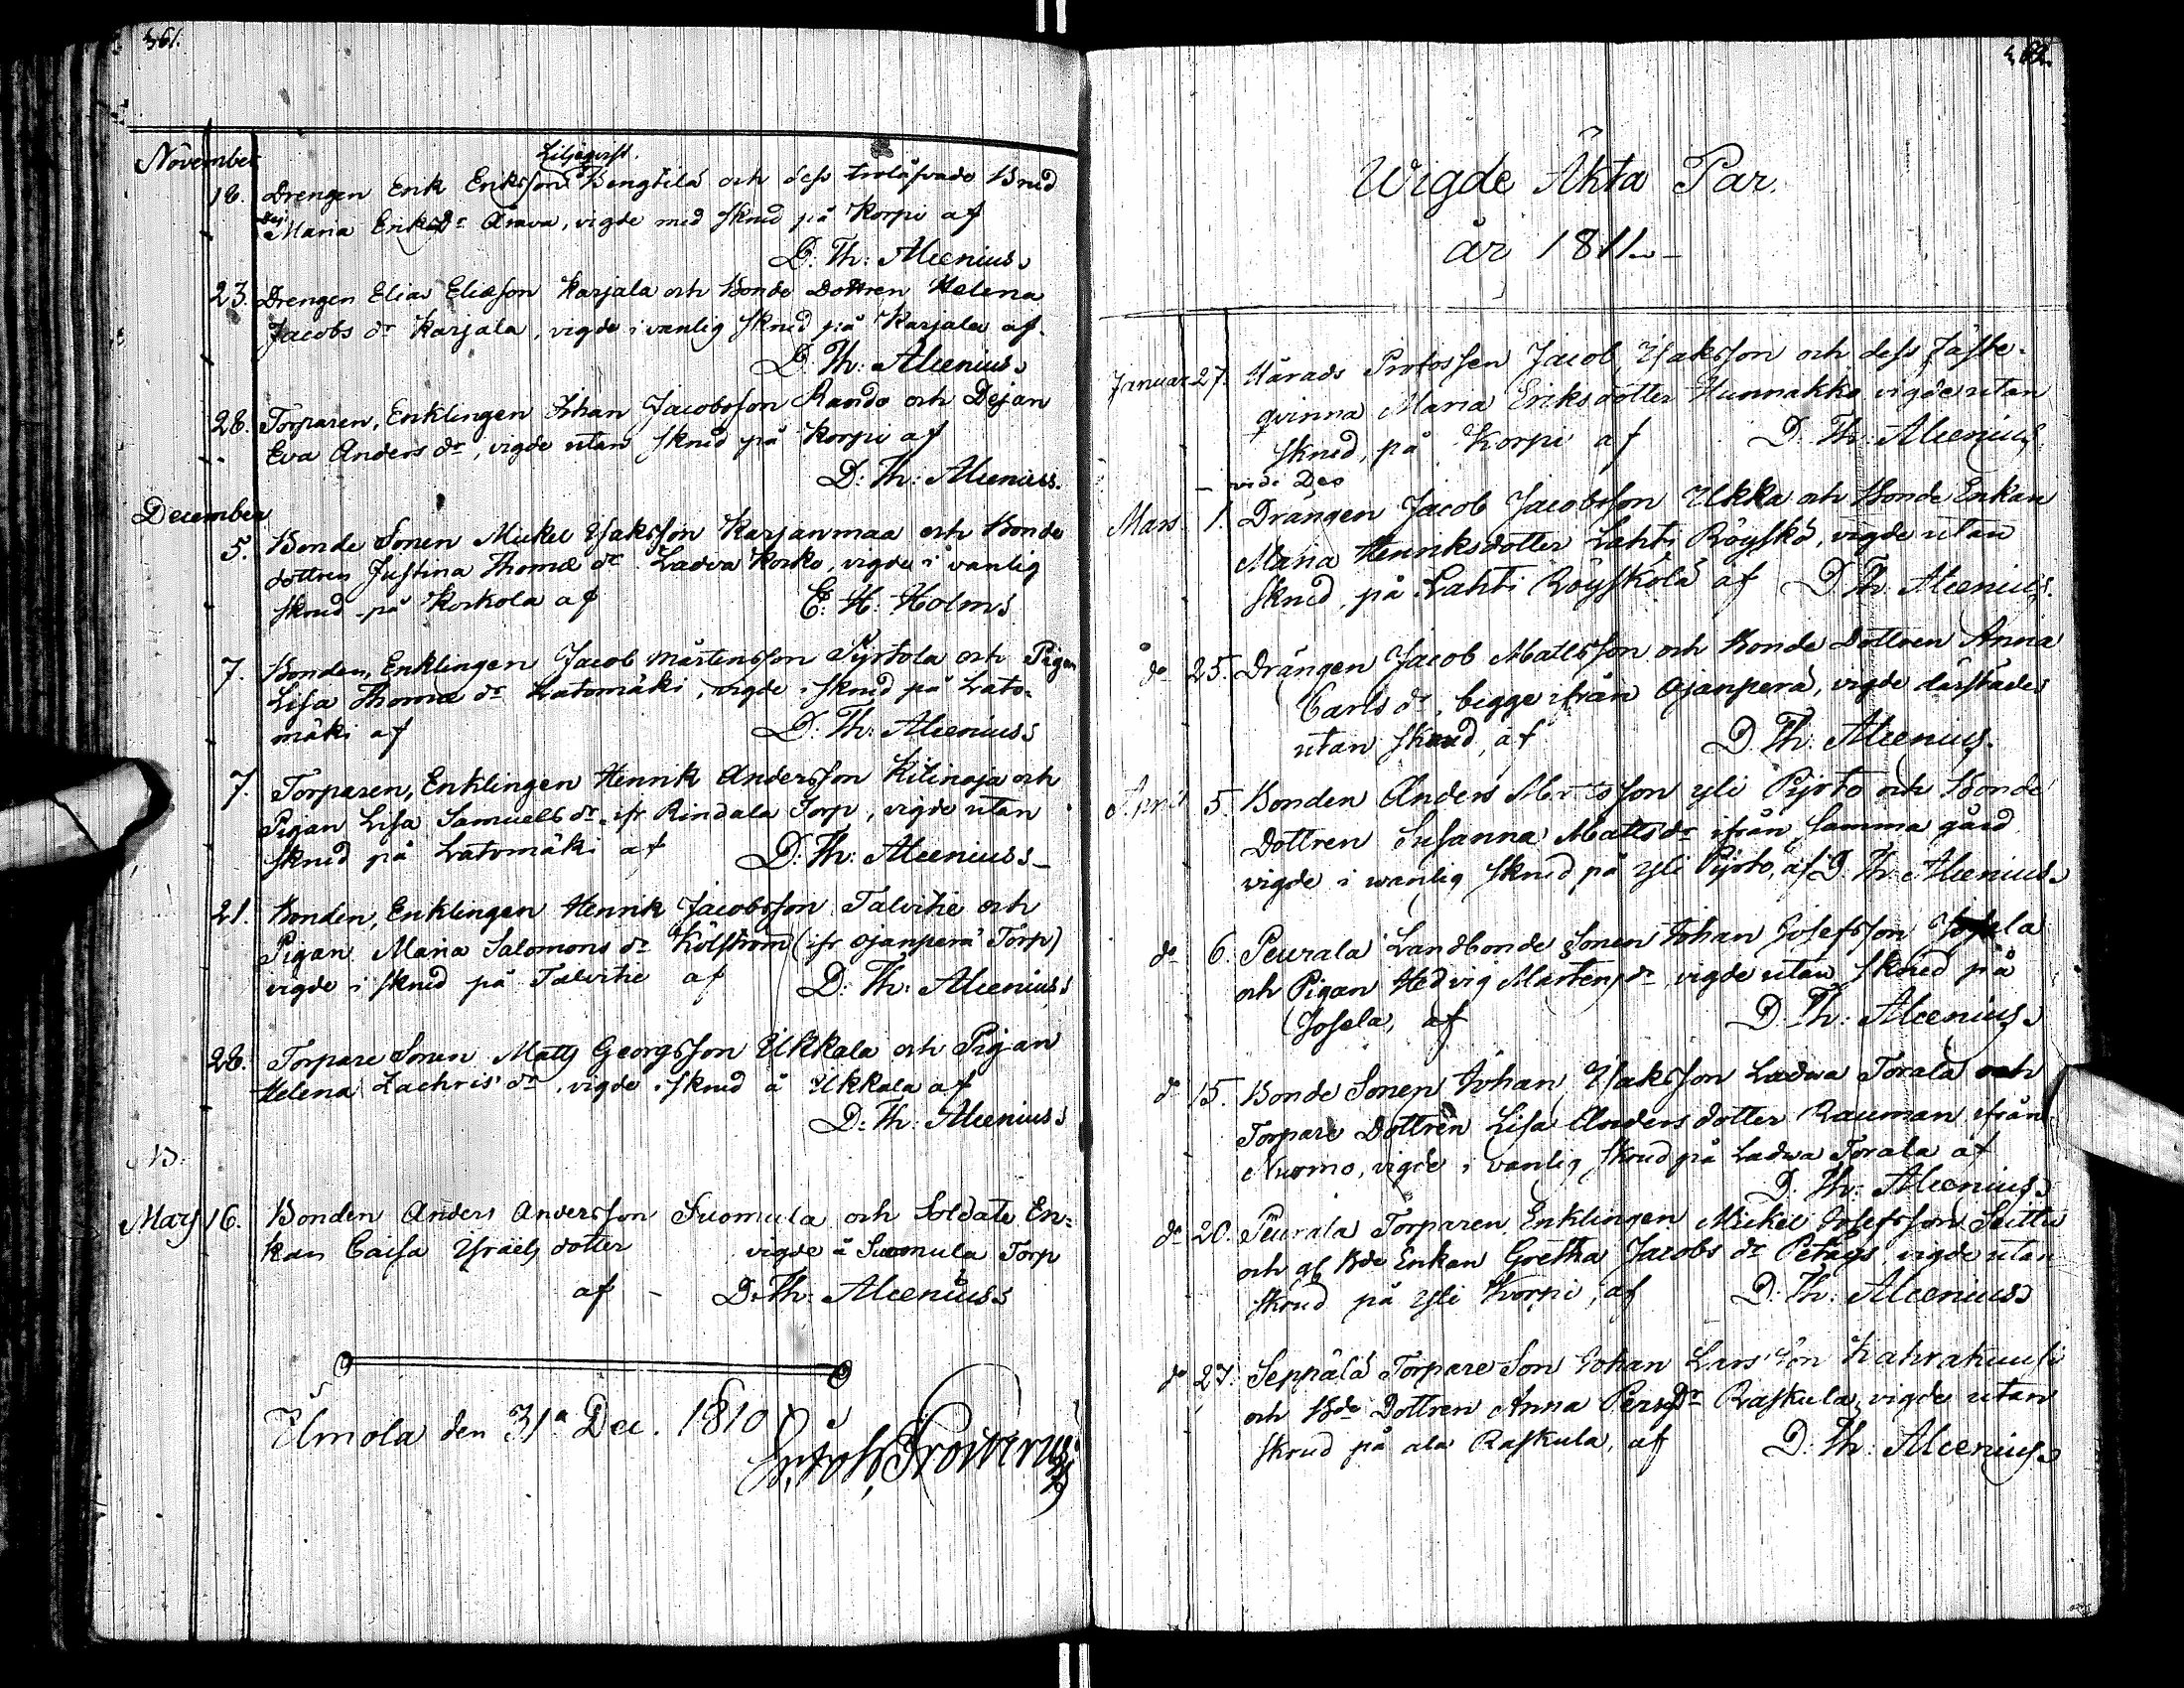 361.
November
Liljeqvist.
18. Drengen Erik Eriksson Bengtilä och dess trolåfvade Brud
Maria Eriks Dr Arava, vigde med skrud på Korpi af
D: Th: Alcenius
23. Drengen Elias Eliæson Karjala och Bonde Dottren Helena
Jacobs dr Karjala, vigde i vanlig skrud på Karjala af
D. Th: Alcenius
28. Torparen, Enklingen Johan Jacobsson Rando och Pejan
Eva Anders dr, vigde utan skrud på Korpi af
D: Th: Alcenius.
December
5. Bonde Sonen Mickel Isaksson Karjanmaa och Bonde
dottren Justina Thomæ dr Ladva Korko, vigde i vanlig
skrud på Korkola af E: H: Holms
7. Bonden, Enklingen Jacob Mårtensson Pyrhola och Pigan
Lisa Thomæ dr Latomäki, vigde i skrud på Lato-
mäki af D: Th: Alcenius
7. Torparen, Enklingen Henrik Andersson Kilinaja och
Pigan Lisa Samuels dr ifr Rindala Torp, vigde utan
skrud på Latomäki af D: Th: Alcenius
21. Bonden, Enklingen Henrik Jacobsson Talvitie och
Pigan Maria Salomons dr Kölström (ifr Ojanperä Torp)
vigde i skrud på Talvitie af D: Th: Alcenius
28. Torpare Sonen Matts Georgsson Ukkola och Pigan
Helena Zachris dr, vigde i skrud å Ukkala af
D: Th: Alcenius
NB.
Mars 16. Bonden Anders Andersson Suomula och Soldate En-
kan Caisa Israels dotter vigde å Suomula Torp
af - D: Th: Alcenius
Ilmola den 31a Dec. 1810
362.
Wigde Äkta Par
år 1811.
Januar 27. Härads Profossen Jacob Isaksson och dess Fäste-
qvinna Maria Eriksdotter Hunnakko vigde utan
skrud, på Korpi af D. Th: Alcenius
vide Dec
Mars 1. Drängen Jacob Jacobsson Ukka och Bonde Enkan
Maria Henriksdotter Lahti Röyskö, vigde utan
skrud, på Lahti Röyskolä af D Th: Alcenius
do 25. Drängen Jacob Mattsson och Bonde Dottren Anna
Carls dr, begge ifrån Ojanperä, vigde därstädes
utan skrud, af D. Th: Alcenius.
April 5. Bonden Anders Mattsson yli Pyrto och Bonde
Dottren Susanna Matts dr ifrån samma gård
vigde i wanlig skrud på yli Pyrto, af D. Th: Alcenius
do 6. Peurala Landbonde Sonen Johan Josefsson
och Pigan Hedvig Mårtens dr vigde utan skrud på
Josela, af D. Th: Alcenius
do 15. Bonde Sonen Johan Isaksson Ladwa Torala och
Torpare Dottren Lisa Andersdotter Rauman ifrån
Nurmo, vigde i vanlig skrud på Ladwa Torala af
D. Th: Alcenius
do 20. Peurala Torparen Enklingen Mickel Josefsson Seittu
och gl Bde Enkan Gretha Jacobs dr Petays vigde utan
skrud på yli Korpi, af D: Th: Alcenius
do 27. Seppälä Torpare Son Johan Larsson Kahrakuusi
och Bde Dottren Anna Pers Dr Raskula, vigde utan
skrud på ala Raskula, af D: Th: Alcenius